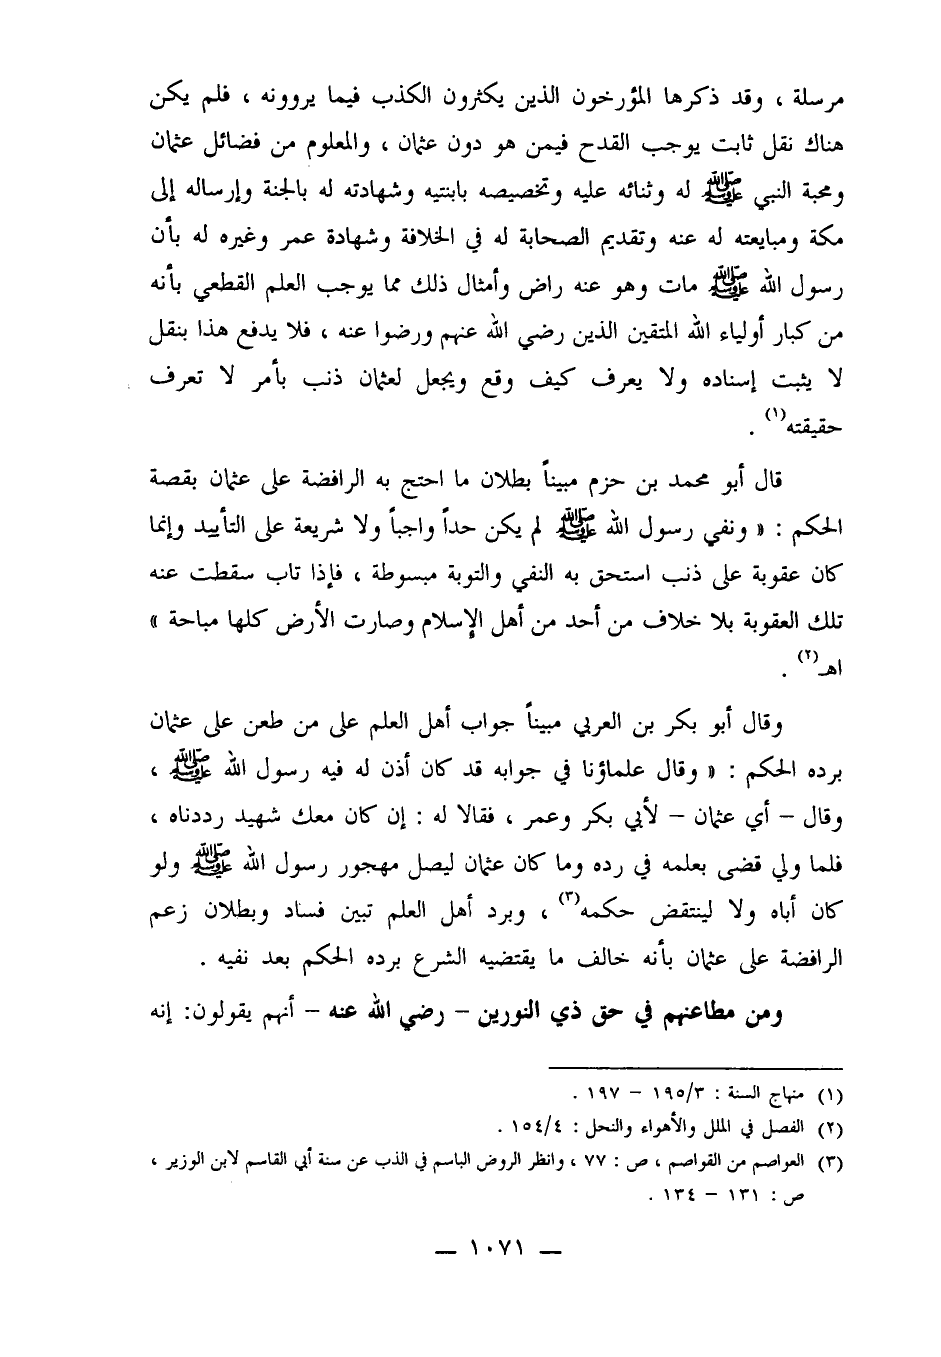 مرسلة ، وقد ذكرها المؤرخون الذين يكثرون الكذب فيما يروونه ، فلم يكن
هناك نقل ثابت يوجب القدح فيمن هو دون عثمان ، والمعلوم من فضائل عثمان
ومحبة النبي ﷺ له وثنائه عليه وتخصيصه بابنتيه وشهادته له بالجنة وإرساله إلى
مكة ومبايعته له عنه وتقديم الصحابة له في الخلافة وشهادة عمر وغيره له بأن
رسول الله ﷺ مات وهو عنه راض وأمثال ذلك مما يوجب العلم القطعي بأنه
من كبار أولياء الله المتقين الذين رضي الله عنهم ورضوا عنه ، فلا يدفع هذا بنقل
لا يثبت إسناده ولا يعرف كيف وقع ويجعل لعثمان ذنب بأمر لا تعرف
حقيقته(١) .
قال أبو محمد بن حزم مبيناً بطلان ما احتج به الرافضة على عثمان بقصة
الحكم : « ونفي رسول الله ﷺ لم يكن حداً واجباً ولا شريعة على التأييد وإنما
كان عقوبة على ذنب استحق به النفي والتوبة مبسوطة ، فإذا تاب سقطت عنه
تلك العقوبة بلا خلاف من أحد من أهل الإسلام وصارت الأرض كلها مباحة »
اهـ(٢) .
وقال أبو بكر بن العربي مبيناً جواب أهل العلم على من طعن على عثمان
برده الحكم : « وقال علماؤنا في جوابه قد كان أذن له فيه رسول الله ﷺ ،
وقال – أي عثمان – لأبي بكر وعمر ، فقالا له : إن كان معك شهيد رددناه ،
فلما ولي قضى بعلمه في رده وما كان عثمان ليصل مهجور رسول الله ﷺ ولو
كان أباه ولا لينتقض حكمه(٣) ، وبرد أهل العلم تبين فساد وبطلان زعم
الرافضة على عثمان بأنه خالف ما يقتضيه الشرع برده الحكم بعد نفيه .
ومن مطاعنهم في حق ذي النورين – رضي الله عنه – أنهم يقولون: إنه
(١) منهاج السنة : ١٩٥/٣ – ١٩٧ .
(٢) الفصل في الملل والأهواء والنحل : ١٥٤/٤ .
(٣) العواصم من القواصم ، ص : ٧٧ ، وانظر الروض الباسم في الذب عن سنة أبي القاسم لابن الوزير ،
ص : ١٣١ – ١٣٤ .
— ١٠٧١ —